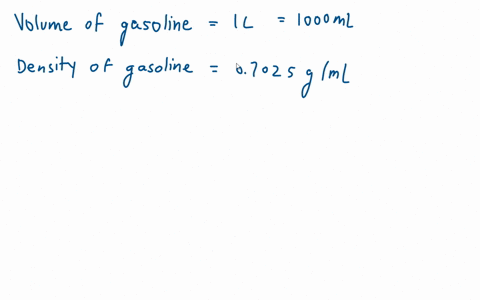 Volume of gasoline = 1L = 1000mL
Density of gasoline = 0.7025 g/mL